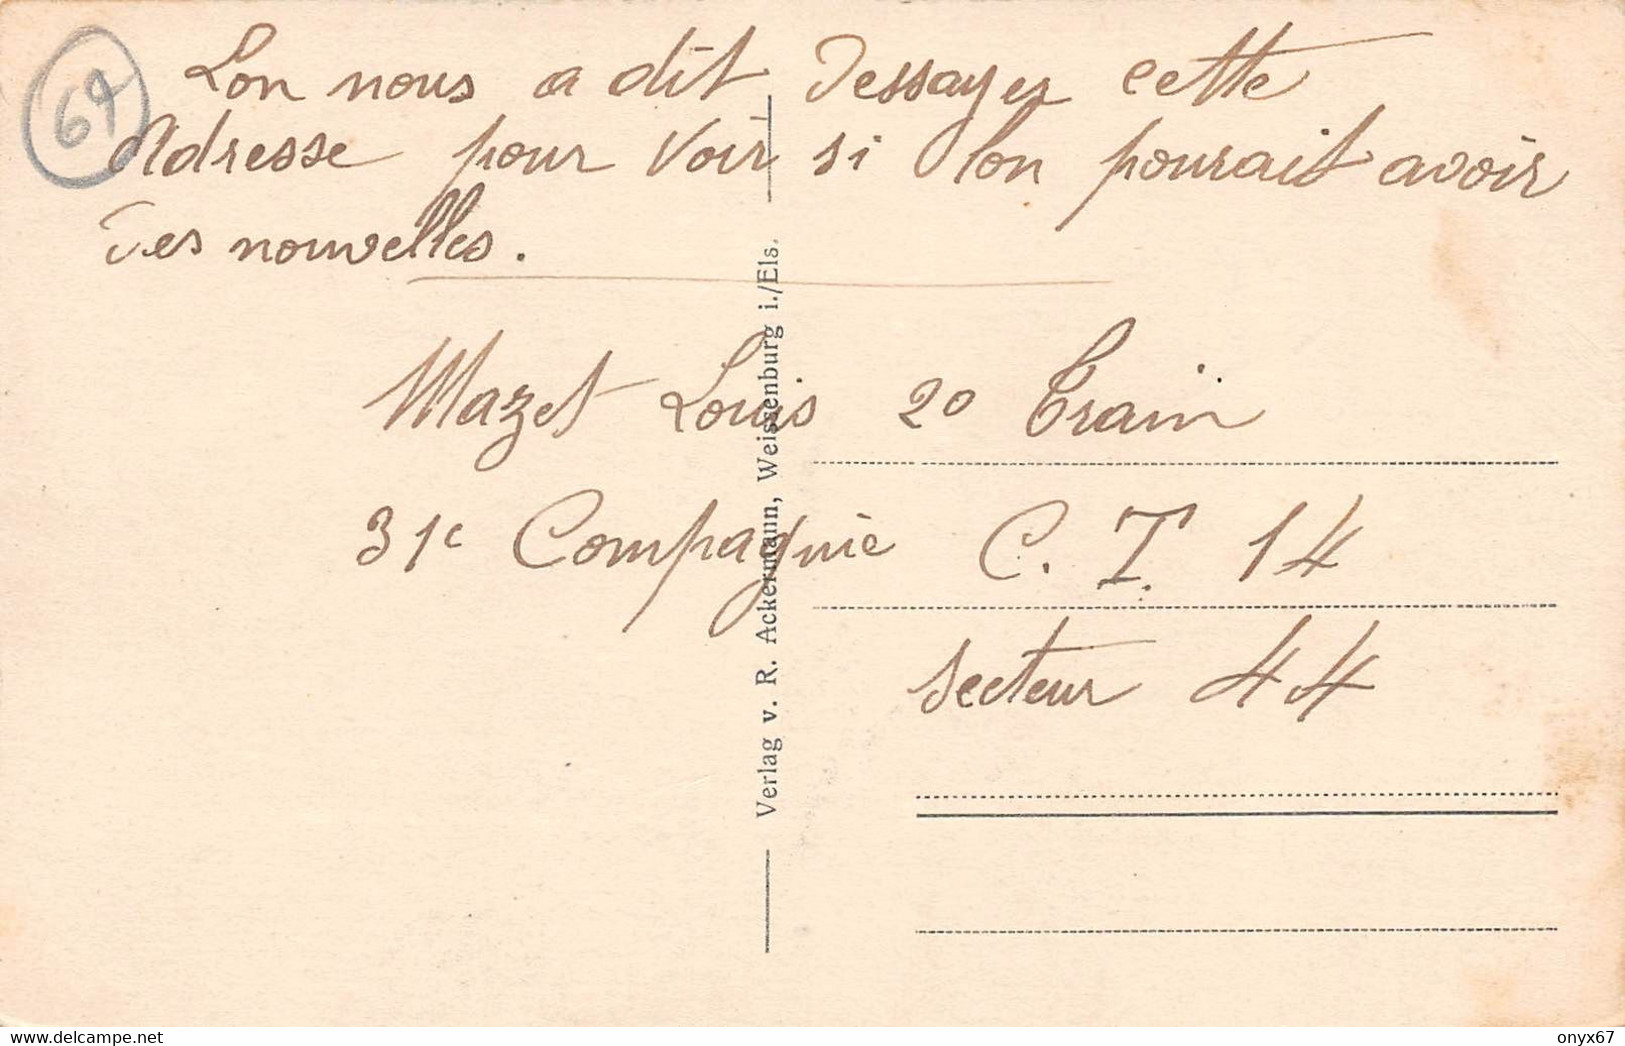 67
Lon nous a dit Dessayer cette
Adresse pour Voir si lon pourait avoir
Des nouvelles.
Mazet Louis 20 Train
31e Compagnie C. T. 14
Secteur 44
Verlag v. R. Ackermann, Weissenburg i./Els.
delcampe.net
onyx67